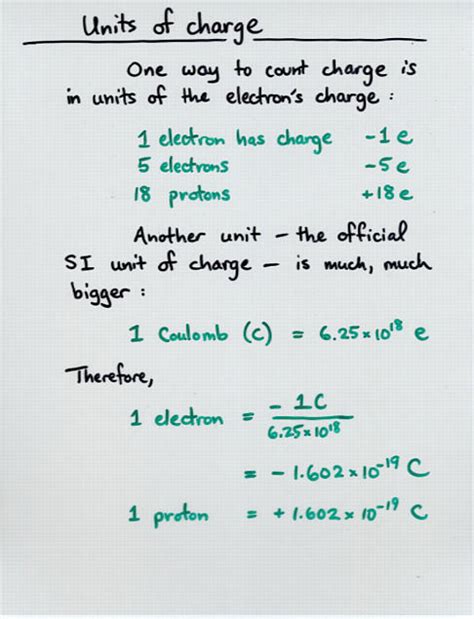 Units of charge
One way to count charge is
in units of the electron's charge :
1 electron has charge -1 e
5 electrons -5 e
18 protons +18 e
Another unit - the official
SI unit of charge - is much, much
bigger :
1 Coulomb (C) = 6.25 × 10¹⁸ e
Therefore,
1 electron = - 1C / 6.25 × 10¹⁸
= - 1.602 × 10⁻¹⁹ C
1 proton = + 1.602 × 10⁻¹⁹ C